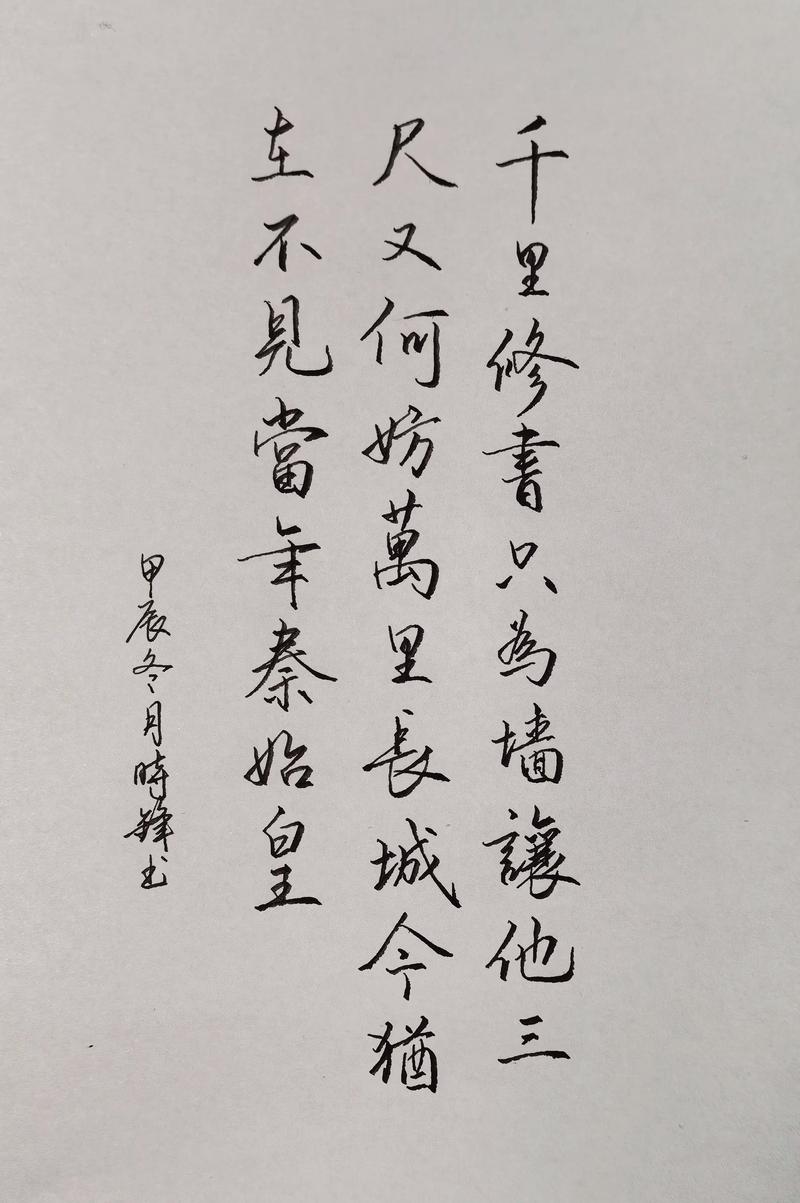 千里修書只為墻讓他三
尺又何妨萬里長城今猶
在不見當年秦始皇
甲辰冬月時鋒书